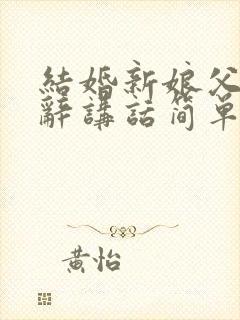 結婚新娘父
辭講話简單
黄怡